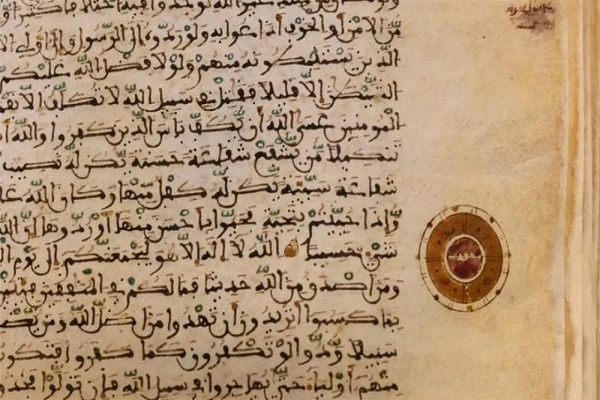 غير الله لوجدوا فيه اختلفا كثيرا
من الامن أو الخوف أذاعوا به ولو ردوه إلى الرسول وإلى أولي
الذين يستنبطونه منهم ولولا فضل الله عليكم
الشيطن إلا قليلا فقتل في سبيل الله لا تكلف إلا
المومنين عسى الله أن يكف بأس الذين كفروا والله
تنكيلا من يشفع شفعة حسنة يكن له نصيب
شفعة سيئة يكن له كفل منها وكان الله
وإذا حييتم بتحية فحيوا بأحسن منها أو ردوها إن الله
شيء حسيبا الله لا إله إلا هو ليجمعنكم إلى يوم
ومن أصدق من الله حديثا فما لكم في المنفقين فئتين
بما كسبوا أتريدون أن تهدوا من أضل الله ومن
سبيلا ودوا لو تكفرون كما كفروا فتكونون
منهم أولياء حتى يهاجروا في سبيل الله فإن تولوا